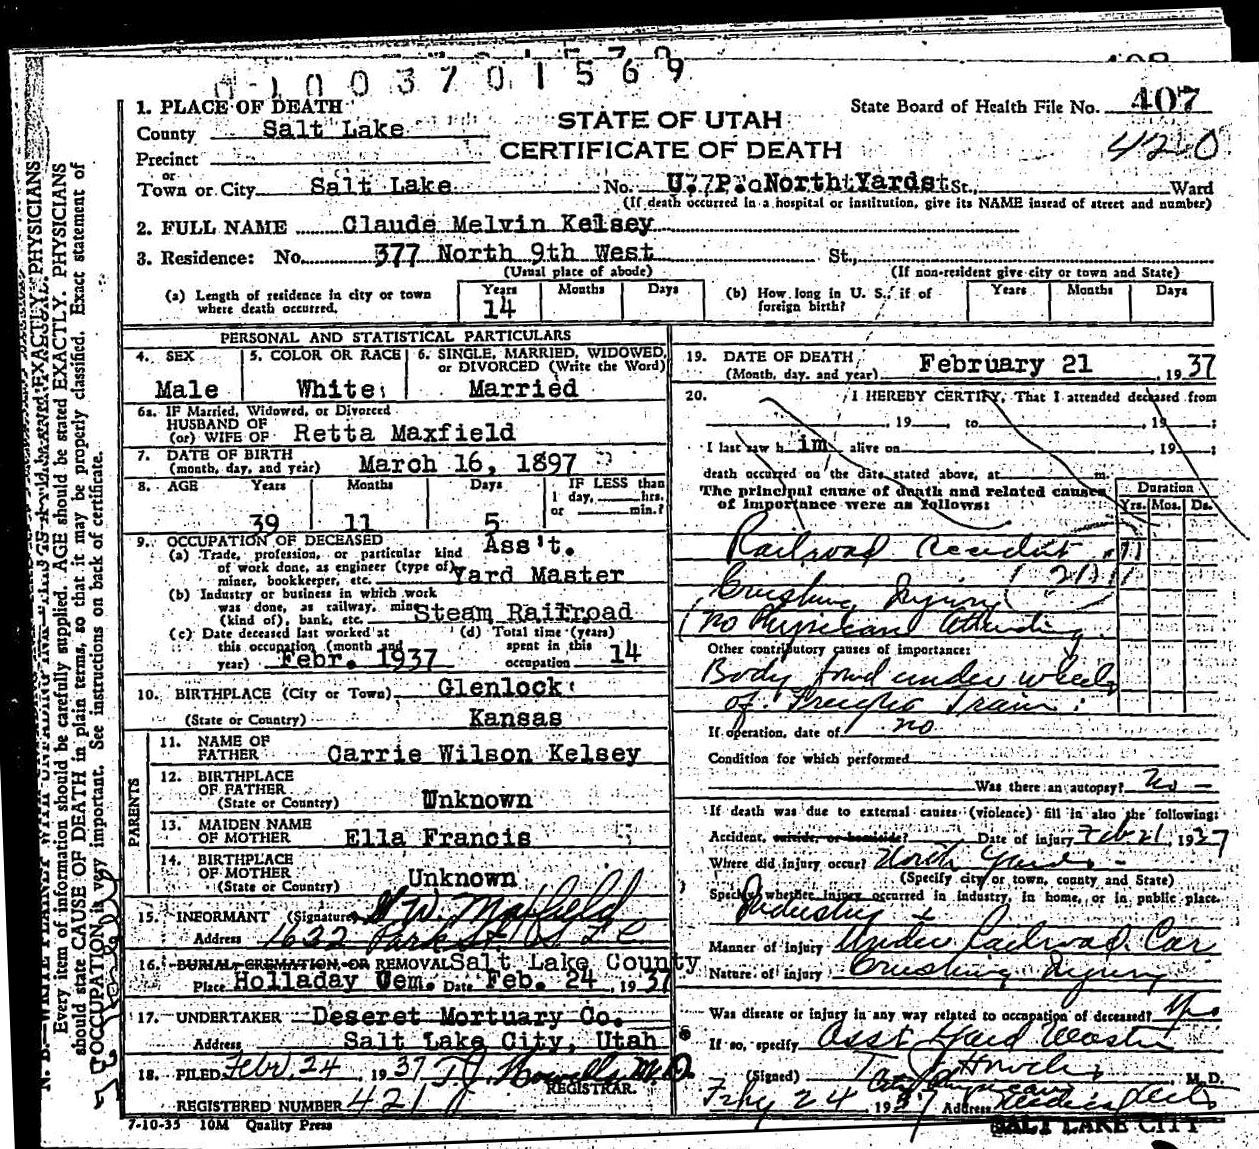 01003701569
1. PLACE OF DEATH
County Salt Lake
STATE OF UTAH
State Board of Health File No. 407
Precinct
CERTIFICATE OF DEATH
420
or
Town or City Salt Lake No. U. P. North Yards St., Ward
(If death occurred in a hospital or institution, give its NAME instead of street and number)
2. FULL NAME Claude Melvin Kelsey
3. Residence: No. 377 North 9th West St.,
(Usual place of abode) (If non-resident give city or town and State)
(a) Length of residence in city or town where death occurred. Years 14 Months Days
(b) How long in U. S., if of foreign birth? Years Months Days
PERSONAL AND STATISTICAL PARTICULARS
4. SEX Male
5. COLOR OR RACE White
6. SINGLE, MARRIED, WIDOWED, or DIVORCED (Write the Word) Married
6a. IF Married, Widowed, or Divorced
HUSBAND OF
(or) WIFE OF Retta Maxfield
7. DATE OF BIRTH
(month, day, and year) March 16, 1897
8. AGE Years 39 Months 11 Days 5 IF LESS than 1 day, hrs. or min.?
9. OCCUPATION OF DECEASED
(a) Trade, profession, or particular kind of work done, as engineer (type of) miner, bookkeeper, etc. Ass't. Yard Master
(b) Industry or business in which work was done, as railway, mine (kind of), bank, etc. Steam Railroad
(c) Date deceased last worked at this occupation (month and year) Febr. 1937
(d) Total time (years) spent in this occupation 14
10. BIRTHPLACE (City or Town) Glenlock
(State or Country) Kansas
PARENTS
11. NAME OF FATHER Carrie Wilson Kelsey
12. BIRTHPLACE OF FATHER (State or Country) Unknown
13. MAIDEN NAME OF MOTHER Ella Francis
14. BIRTHPLACE OF MOTHER (State or Country) Unknown
15. INFORMANT (Signature) W. Maxfield
Address 1632 Park St. S L C.
16. BURIAL, CREMATION, OR REMOVAL Salt Lake County
Place Holladay Cem. Date Feb. 24, 1937
17. UNDERTAKER Deseret Mortuary Co.
Address Salt Lake City, Utah
18. FILED Febr. 24 1937 T. J. Howells M.D.
REGISTRAR.
REGISTERED NUMBER 421
7-10-35 10M Quality Press
19. DATE OF DEATH
(Month, day, and year) February 21, 1937
20. I HEREBY CERTIFY, That I attended deceased from
, 19 , to , 19 ;
I last saw him alive on , 19 ;
death occurred on the date stated above, at m.
The principal cause of death and related causes of importance were as follows:
Duration
Yrs. Mos. Ds.
Railroad Accident
Crushing Injury
(No Physician Attending
Other contributory causes of importance:
Body found under wheels
of Freight Train.
If operation, date of no
Condition for which performed
Was there an autopsy? No
If death was due to external causes (violence) fill in also the following:
Accident, suicide, or homicide? Date of injury Feb. 21, 1937
Where did injury occur? North Yards
(Specify city or town, county and State)
Specify whether injury occurred in industry, in home, or in public place.
Industry
Manner of injury Under Railroad Car
Nature of injury Crushing Injury
Was disease or injury in any way related to occupation of deceased? Yes
If so, specify Asst Yard Master
(Signed) M. D.
City Physician
Feby 24 1937 Address
SALT LAKE CITY
Every item of information should be carefully supplied. AGE should be stated EXACTLY. PHYSICIANS
should state CAUSE OF DEATH in plain terms, so that it may be properly classified. Exact statement of
OCCUPATION is very important. See instructions on back of certificate.